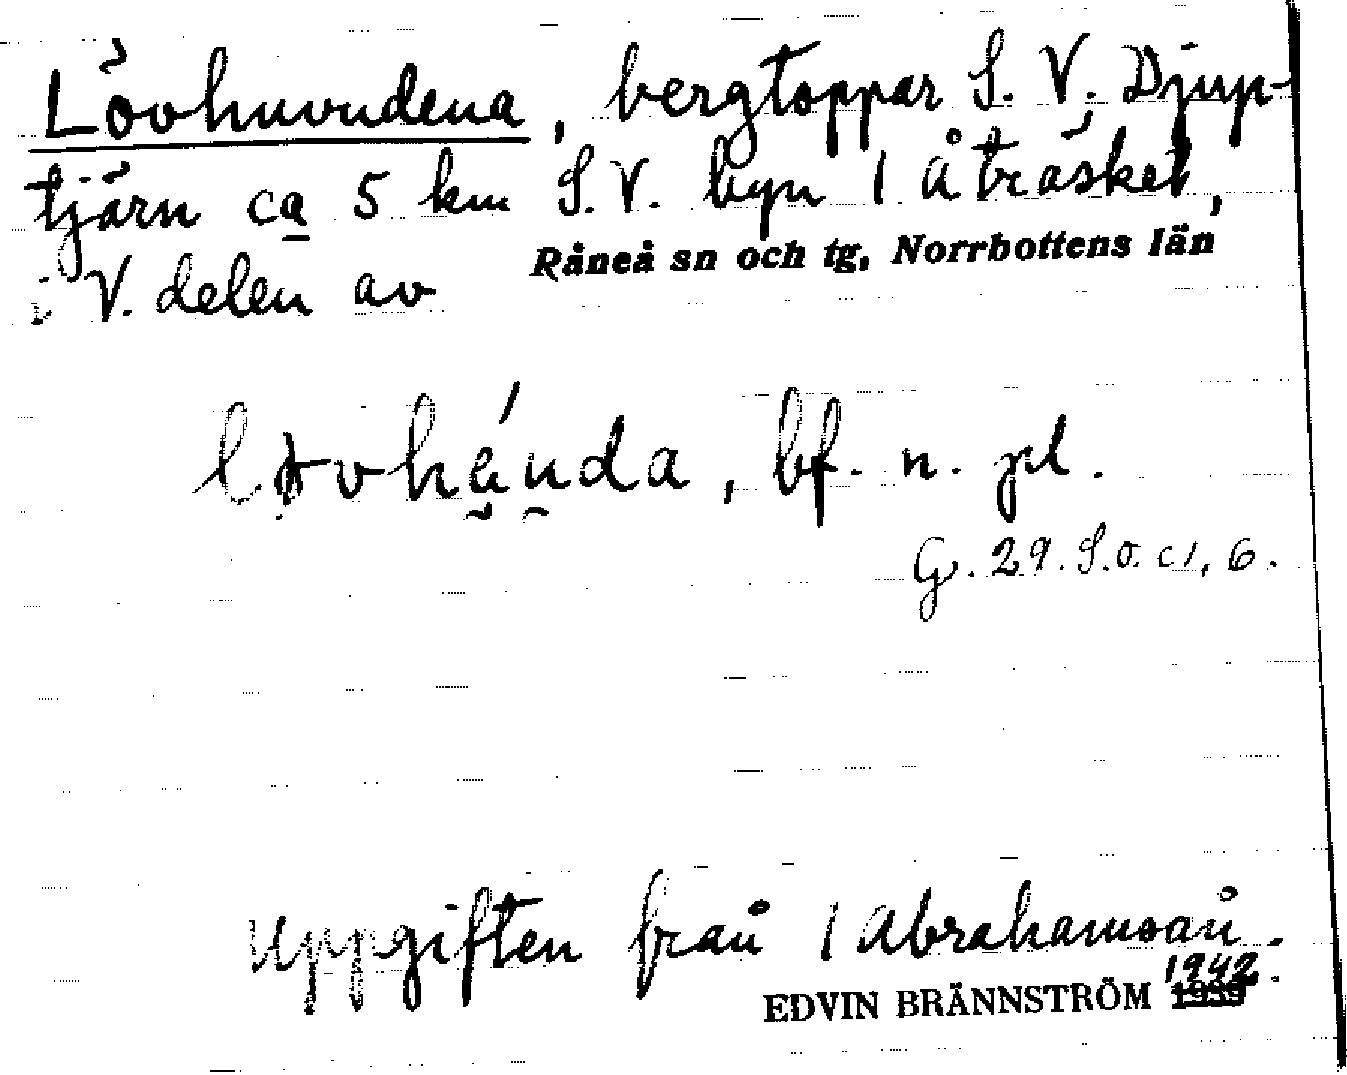 Lövhuvudena, bergtoppar S. V. Djup-
tjärn ca 5 km S. V. byn Åträsket,
i V. delen av Råneå sn och tg, Norrbottens län
bf. n. pl.
G. 29. S.o. c1, 6.
Uppgiften från Abrahamsån.
EDVIN BRÄNNSTRÖM 1942.